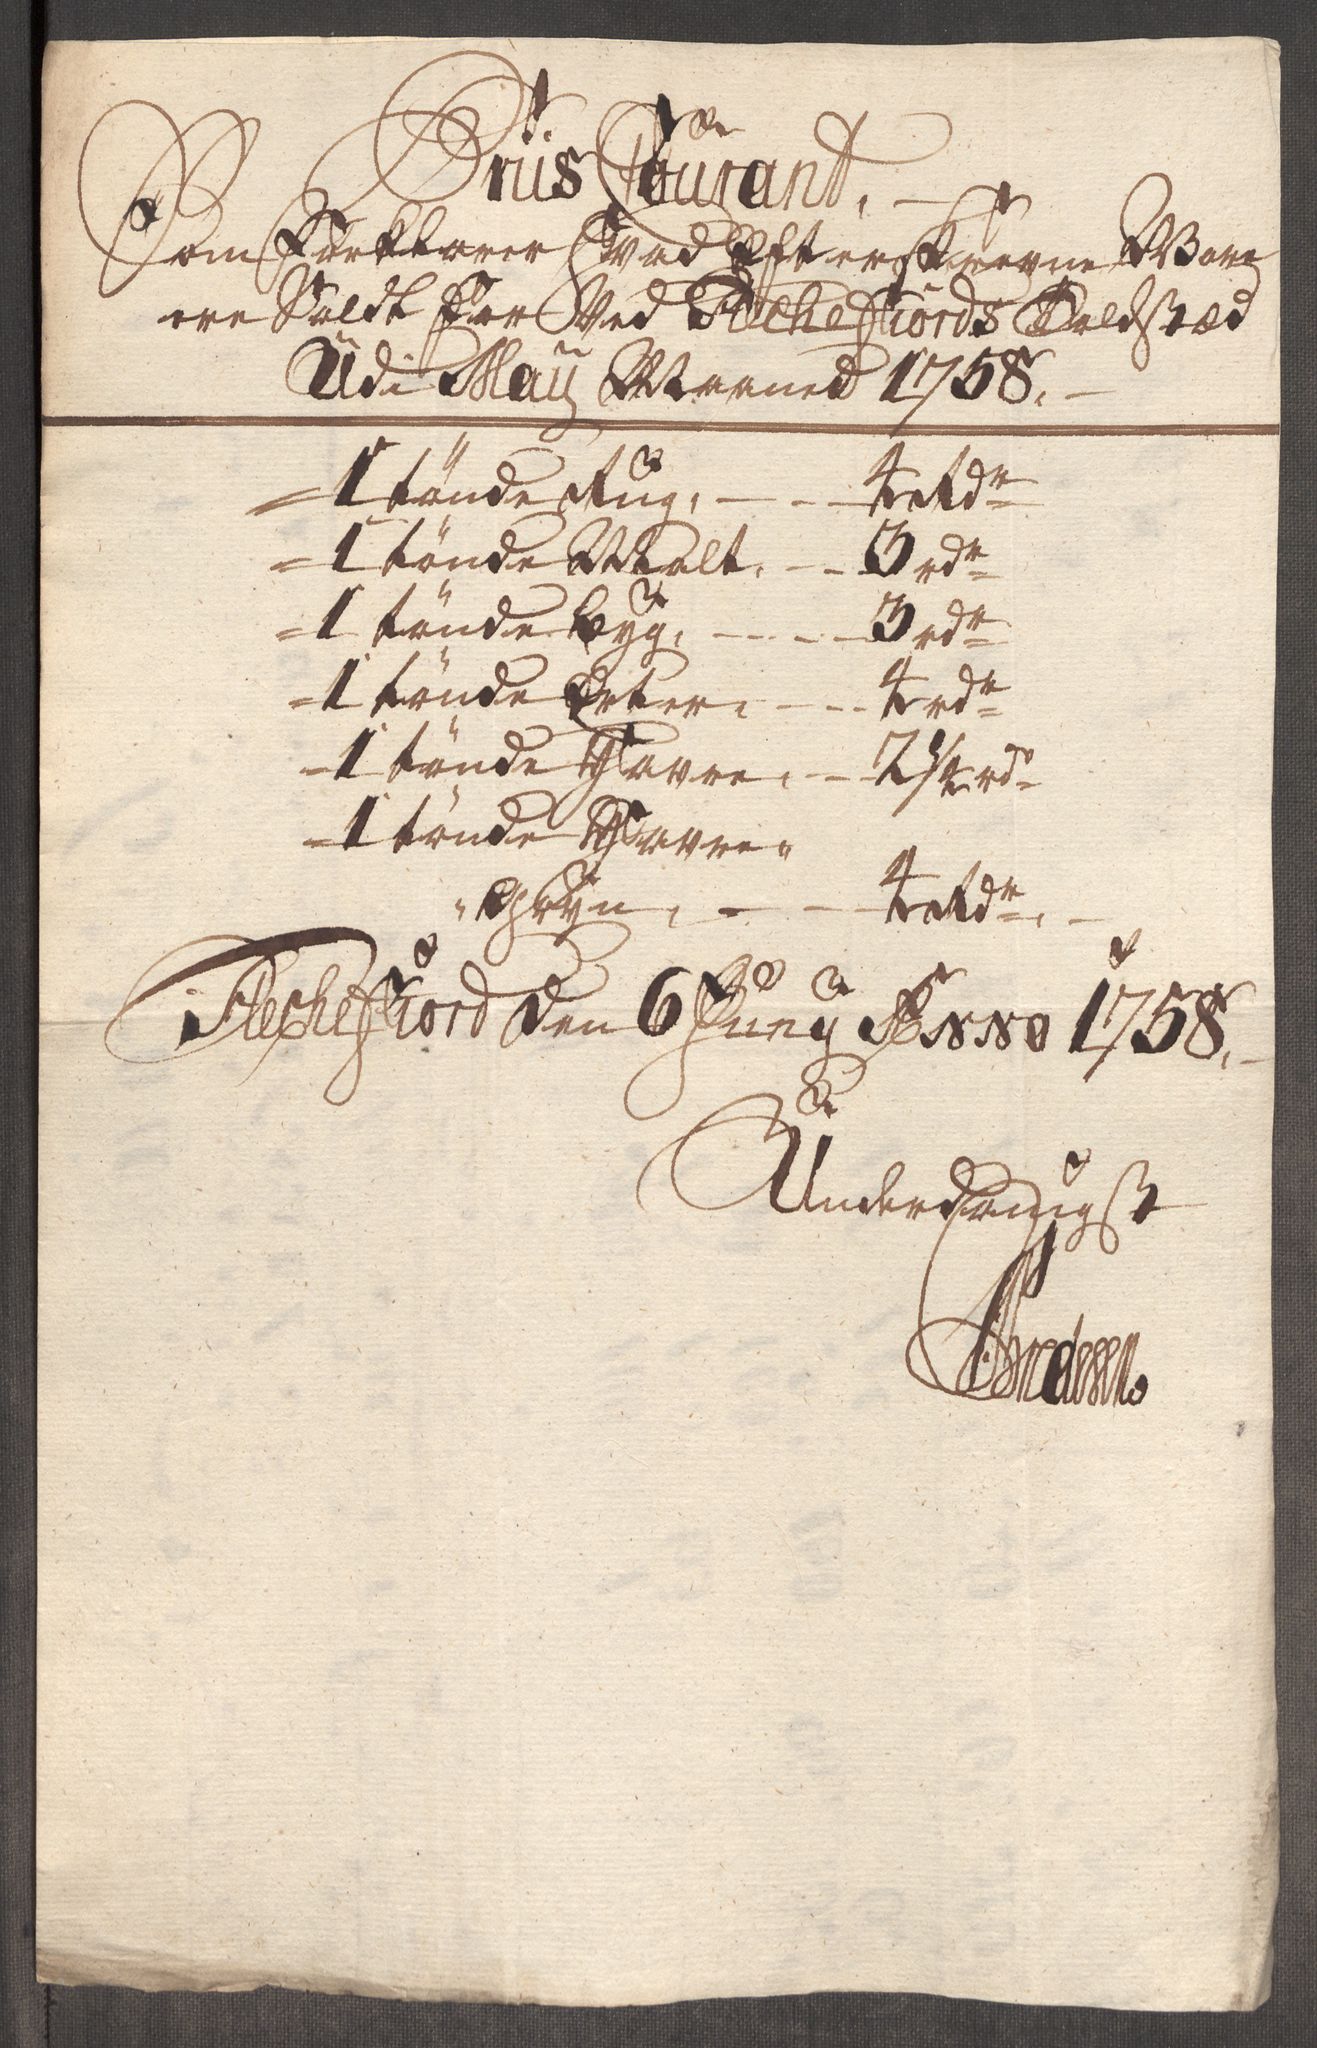 Priis Courant,
Som Forklarer Hvad Efterskrevne Ware
ere Soldt for Ved Flechefiords Toldstæd
Udi Maÿ Maaned 1758.
1 tønde Rug, 4 Rdr
1 tønde Malt, 3 rdr
1 tønde byg, 3 rdr
1 tønde Erter, 4 rdr
1 tønde Havre, 2 1/4 rdr
1 tønde Havre"
"Gryn, 4 Rdr
Flechefiord den 6 Junÿ Anno 1758.
Underdanigst